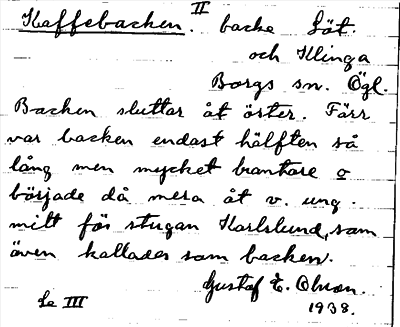 Kaffebacken. II backe Söt.
och Klinga
Borgs sn. Ögl.
Backen sluttar åt öster. Förr
var backen endast hälften så
lång men mycket brantare o
började då mera åt v. ung.
mitt för stugan Karlslund, som
även kallades som backen.
Gustaf E. Olsson.
Se III 1938.